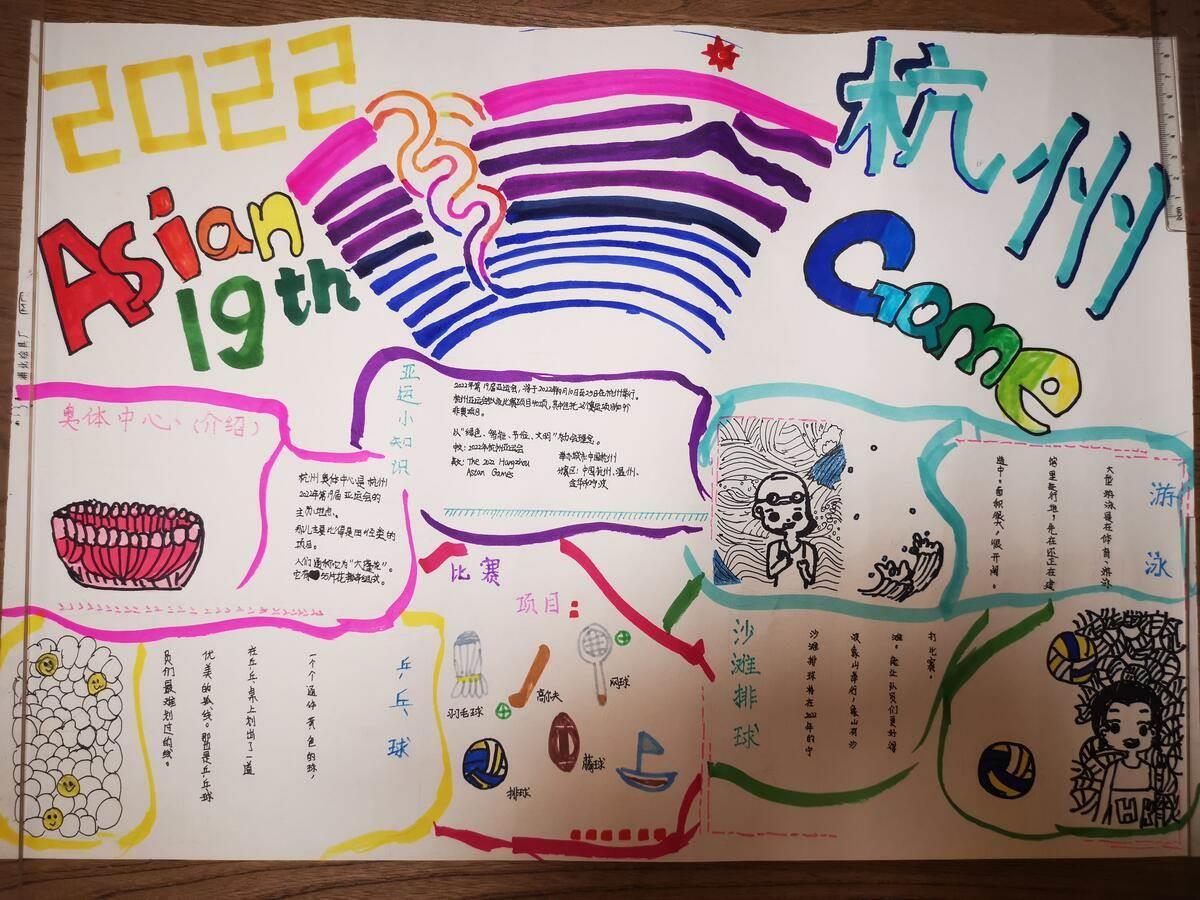 2022
杭州
Asian
19th
Game
奥体中心、(介绍)
杭州奥体中心是杭州
2022年第19届亚运会的
主办地点。
那儿主要比得是田径类的
项目。
人们通称它为“大莲花”。
亚运小知识
2022年第19届亚运会,将于2022年9月10日至25日在杭州举行。
从“绿色、智能、节俭、文明”办会理念。
中文:2022年杭州亚运会
英文:The 2022 Hangzhou
Asian Games
举办城市:中国杭州
协办区:中国杭州、温州、
金华和宁波
游泳
大型游泳馆在体育、游泳
馆里举行哦,先在还正在建
造中。面积很大,很开阔。
比赛
项目:
羽毛球
高尔夫
网球
排球
藤球
乒乓球
一个个逗你黄色的球,
在乒乓桌上划出了一道
优美的弧线。那就是乒乓球
员们最难划过的线。
沙滩排球
打比赛。
滩。能让队员们更好得
波象山举行,象山有沙
沙滩排球将在2022年的宁